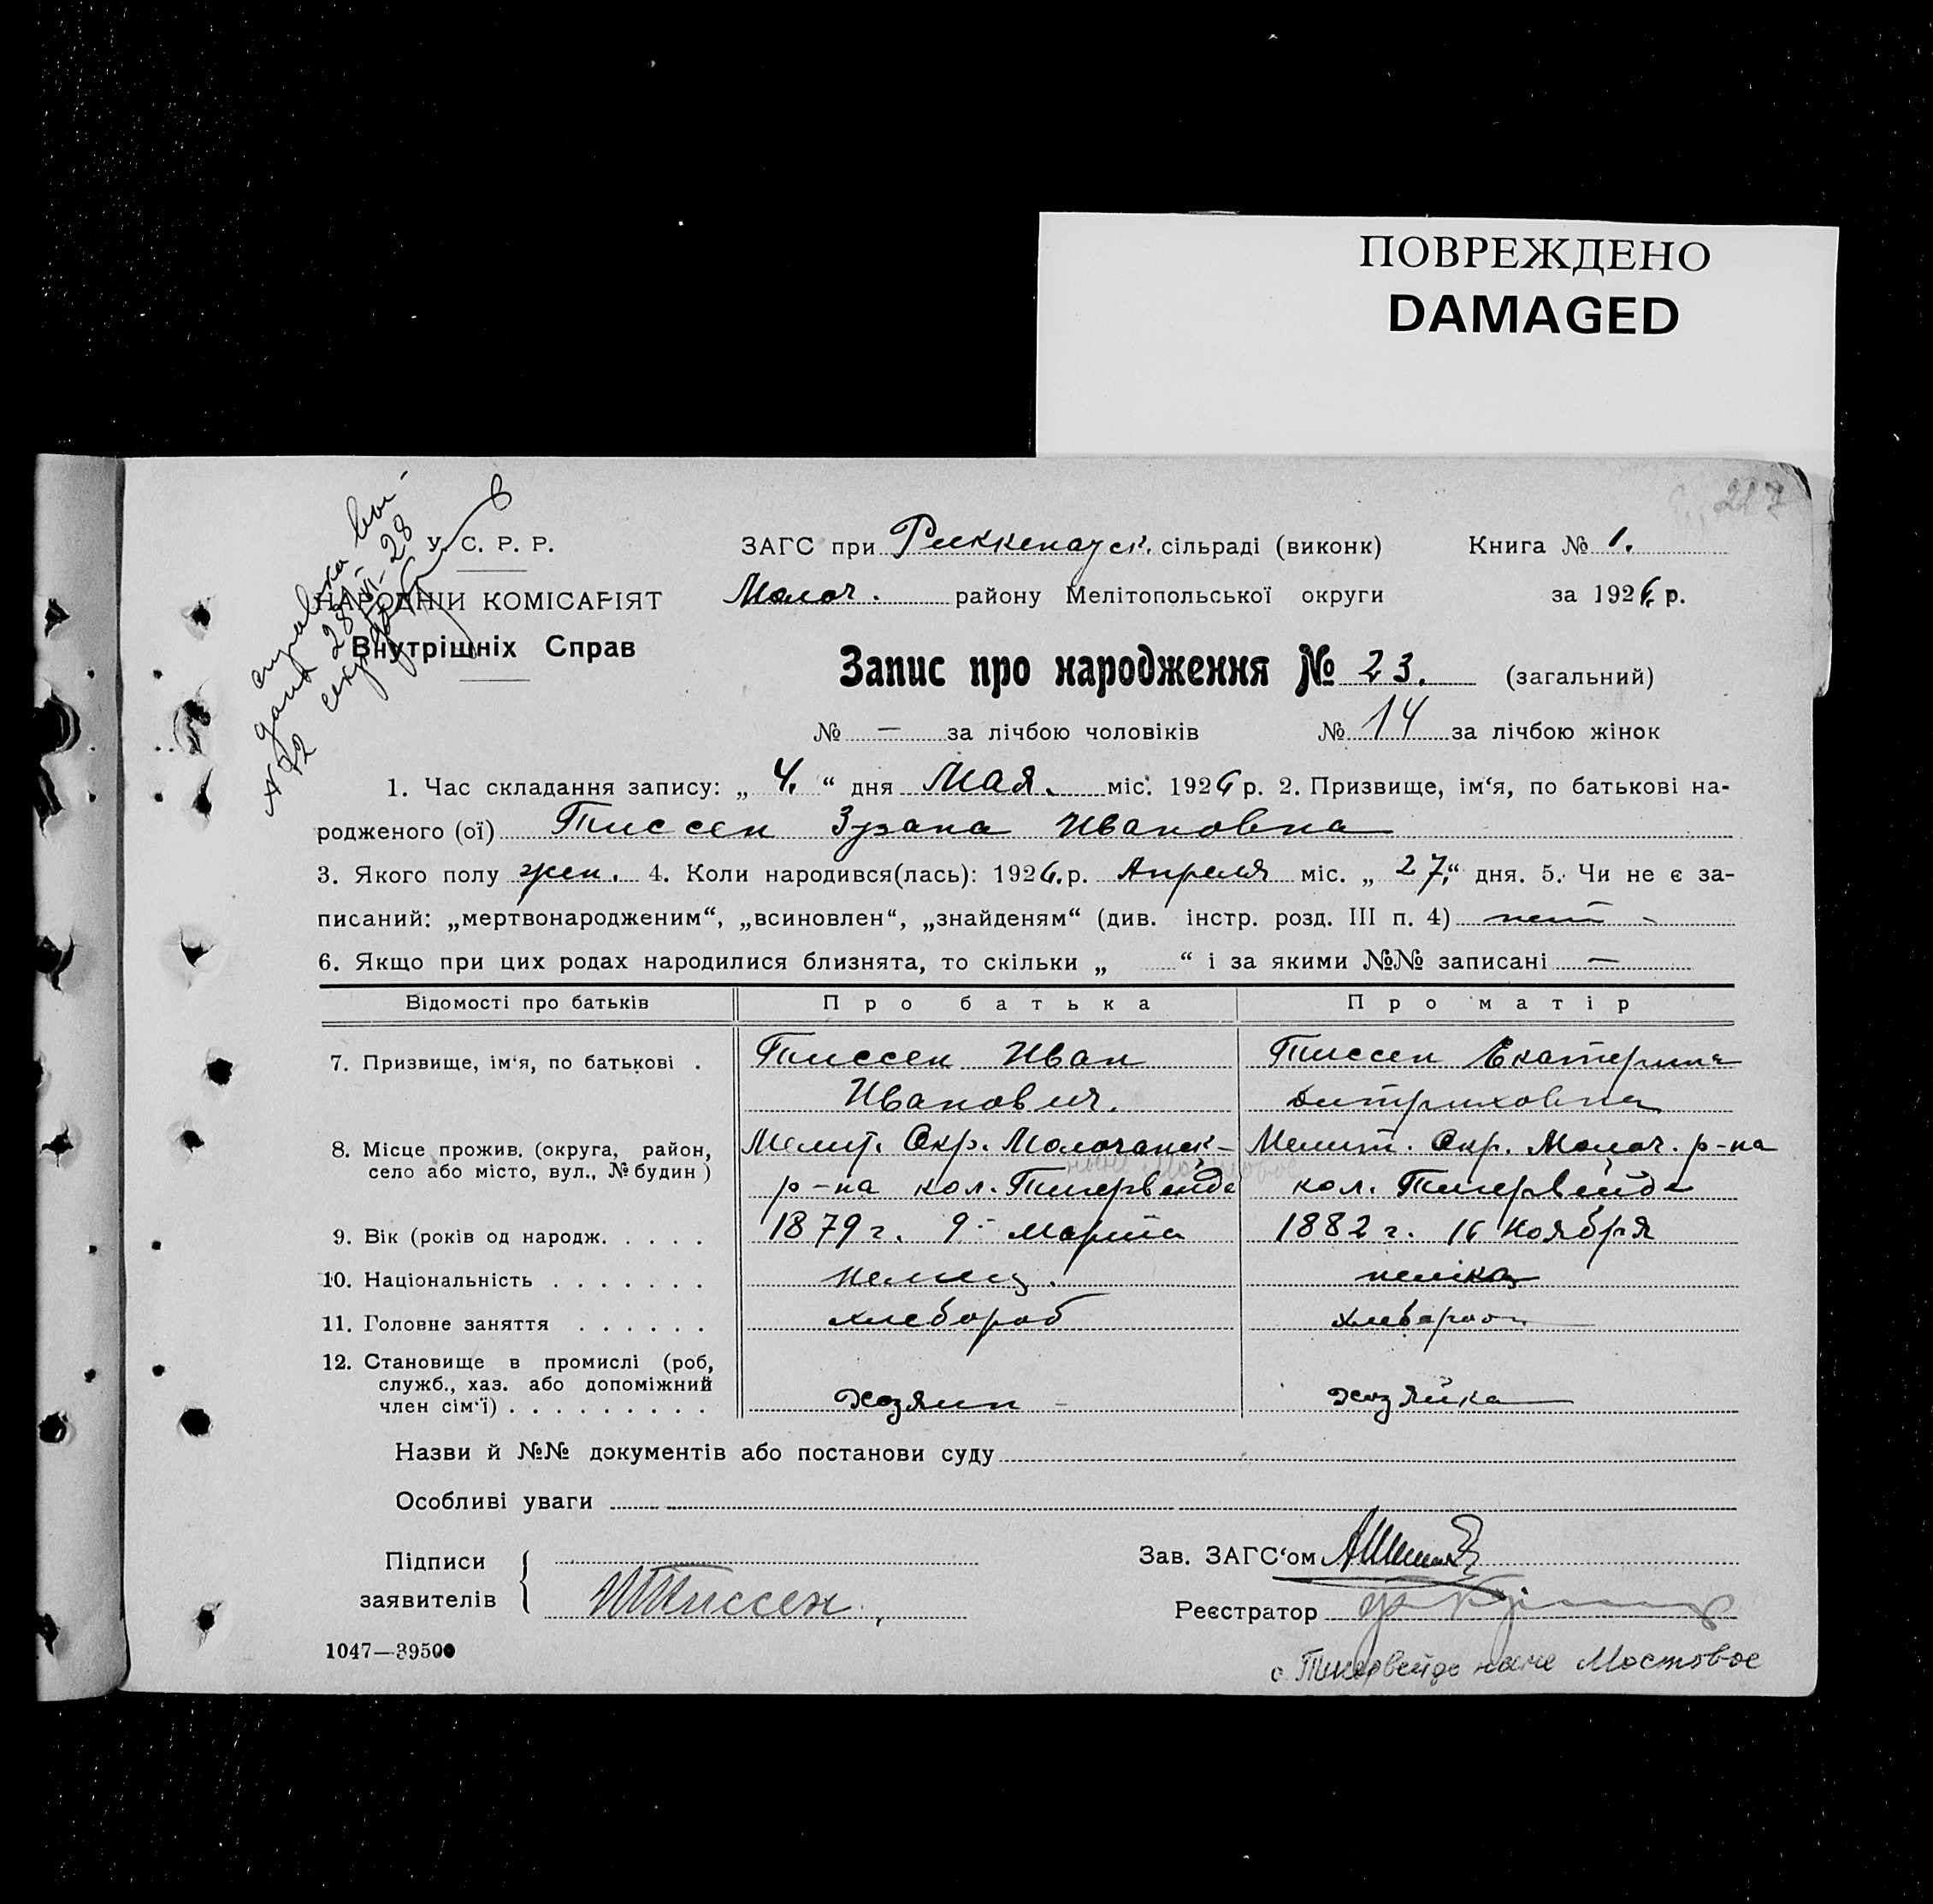 ПОВРЕЖДЕНО
DAMAGED
227
справка вы-
дана 28/VI-28
N 42 секр
У. С. Р. Р.
НАРОДНІЙ КОМІСАРІЯТ
Внутрішніх Справ
ЗАГС при Риккенауск. сільраді (виконк) Книга № 1.
Молоч. району Мелітопольської округи за 1926 р.
Запис про народження № 23. (загальний)
№ — за лічбою чоловіків № 14 за лічбою жінок
1. Час складання запису: „ 4. “ дня Мая. міс. 1926 р. 2. Призвище, ім‘я, по батькові на-
родженого (ої) Тиссен Зузана Ивановна
3. Якого полу жен. 4. Коли народився(лась): 1926.р. Апреля міс. „ 27.“ дня. 5. Чи не є за-
писаний: „мертвонародженим“, „всиновлен“, „знайденям“ (див. інстр. розд. III п. 4) нет -
6. Якщо при цих родах народилися близнята, то скільки „ “ і за якими №№ записані —
Відомості про батьків Про батька Про матір
7. Призвище, ім‘я, по батькові . Тиссен Иван Тиссен Екатерина
Иванович. Дитриховна
8. Місце прожив. (округа, район, Мелит. Окр. Молочанск- Мелит. Окр. Молоч. р-на
село або місто, вул., № будин ) р-на кол. Тигервейде кол. Тигервейде
ныне Мостовое
9. Вік (років од народж. . . . . 1879 г. 9 - марта 1882 г. 16 Ноября
10. Національність . . . . . . . Немец. немка
11. Головне заняття . . . . . . хлебороб хлебороб
12. Становище в промислі (роб,
служб., хаз. або допоміжний
член сім‘ї) . . . . . . . . . хозяин - хозяйка
Назви й №№ документів або постанови суду
Особливі уваги
Підписи Зав. ЗАГС‘ом
заявителів ИТиссен. Реєстратор
1047—39500
с. Тигервейде ныне Мостовое